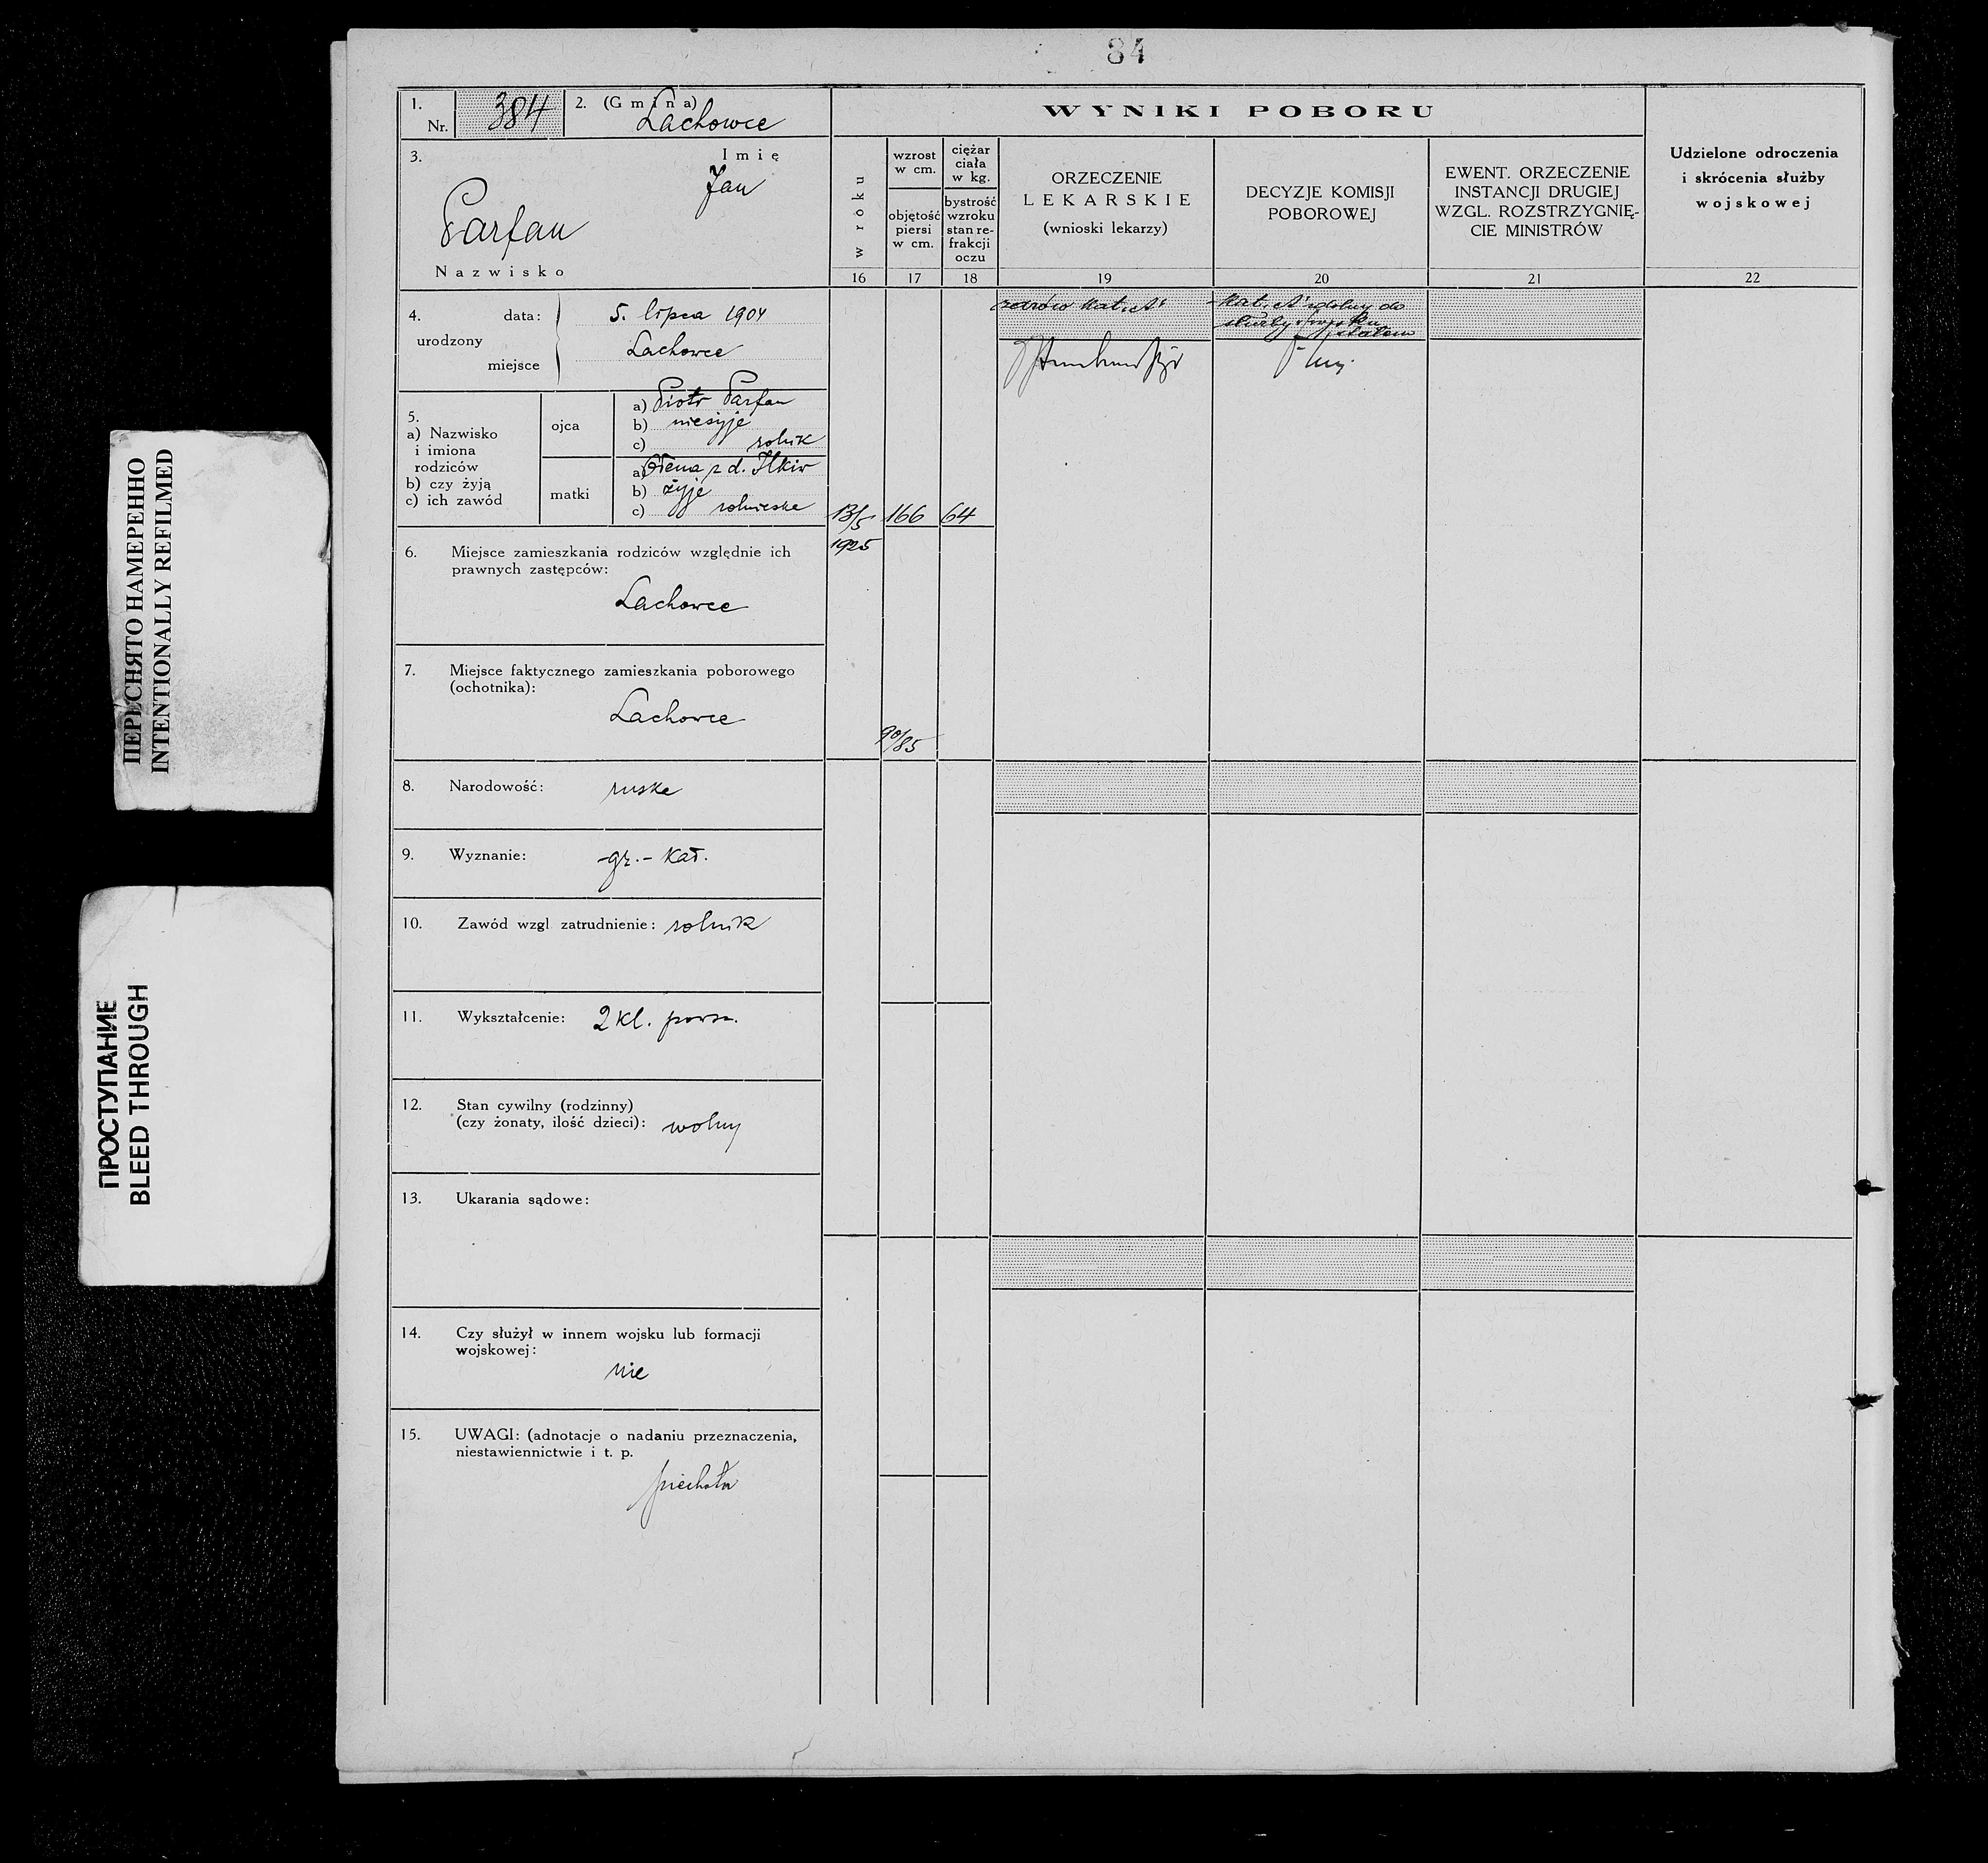 84
1.
Nr. 384
2. (Gmina)
Lachowce
3.
Imię
Jan
Parfan
Nazwisko
4.
urodzony
data: 5. lipca 1904
miejsce Lachowce
5.
a) Nazwisko
i imiona
rodziców
b) czy żyją
c) ich zawód
ojca
a) Piotr Parfan
b) nieżyje
c) rolnik
matki
a) Ołena z d. Ilkiw
b) żyje
c) rolniczka
6. Miejsce zamieszkania rodziców względnie ich
prawnych zastępców:
Lachowce
7. Miejsce faktycznego zamieszkania poborowego
(ochotnika):
Lachowce
8. Narodowość: ruska
9. Wyznanie: gr.-kat.
10. Zawód wzgl. zatrudnienie: rolnik
11. Wykształcenie: 2 kl. powsz.
12. Stan cywilny (rodzinny)
(czy żonaty, ilość dzieci): wolny
13. Ukarania sądowe:
14. Czy służył w innem wojsku lub formacji
wojskowej:
nie
15. UWAGI: (adnotacje o nadaniu przeznaczenia,
niestawiennictwie i t. p.
piechota
WYNIKI POBORU
w roku
16
13/5
1925
wzrost
w cm.
objętość
piersi
w cm.
17
166
90/85
ciężar
ciała
w kg.
bystrość
wzroku
stan re-
frakcji
oczu
18
64
ORZECZENIE
LEKARSKIE
(wnioski lekarzy)
19
zdrów kat. "A"
DECYZJE KOMISJI
POBOROWEJ
20
kat. "A" zdolny do
służby w wojsku
stałem
EWENT. ORZECZENIE
INSTANCJI DRUGIEJ
WZGL. ROZSTRZYGNIĘ-
CIE MINISTRÓW
21
Udzielone odroczenia
i skrócenia służby
wojskowej
22
ПЕРЕСНЯТО НАМЕРЕННО
INTENTIONALLY REFILMED
ПРОСТУПАНИЕ
BLEED THROUGH